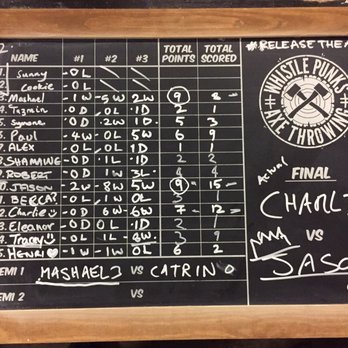 NAME #1 #2 #3 TOTAL POINTS TOTAL SCORED
1. Sunny -0L
2. Cookie -0L
3. Mashael -1W -5W 2W 9 8
4. Tazmin -0L 2 1
5. -0D 1D 5 3
6. Paul -4W -0L 5W 6 9
7. ALEX -0L 0L 1D 1 1
8. 0L 1L 1D
9. ROBERT -0D 1W 3L 4 4
0. JASON -2W -8W 5W 9 -15-
1. 1W 0L 3
2. Charlie -0D 6W -6W 7 -12-
3. Eleanor -0D 0L -1D 2
4. Tracey -0L 1L -8W 3 9
5. HENRI -1W -1W 0L 6 2
SEMI 1 MASHAEL 3 VS CATRIN 0
SEMI 2 VS
#RELEASE THE
WHISTLE PUNKS
AXE THROWING
Actual
FINAL
CHARL
VS
JASO